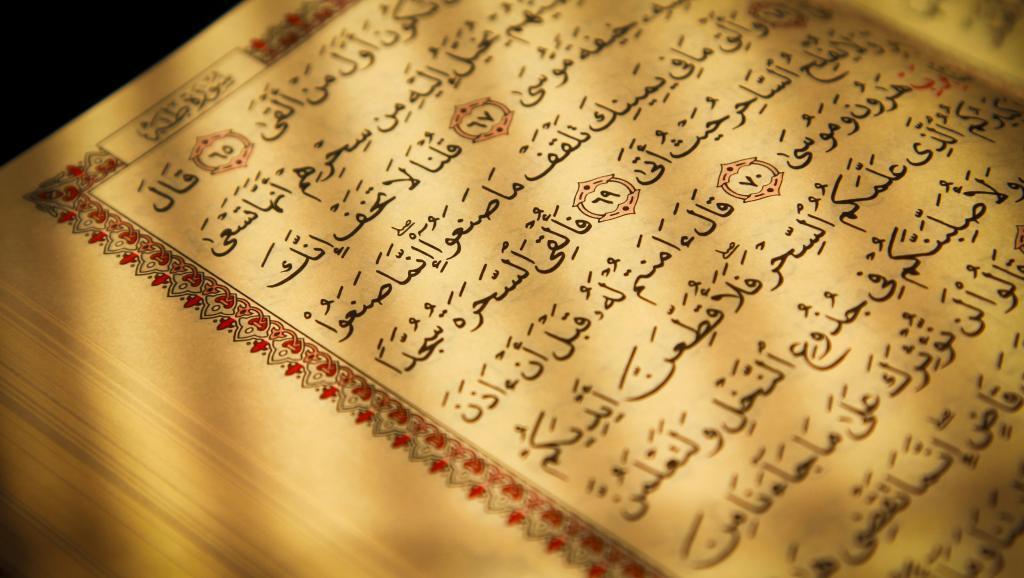 سُورَةُ طه
نَكُونَ أَوَّلَ مَنْ أَلْقَىٰ ٦٥ قَالَ
يُخَيَّلُ إِلَيْهِ مِن سِحْرِهِمْ أَنَّهَا تَسْعَىٰ
خِيفَةً مُّوسَىٰ ٦٧ قُلْنَا لَا تَخَفْ إِنَّكَ
وَأَلْقِ مَا فِي يَمِينِكَ تَلْقَفْ مَا صَنَعُوٓا۟ إِنَّمَا صَنَعُوا۟
يُفْلِحُ ٱلسَّاحِرُ حَيْثُ أَتَىٰ ٦٩ فَأُلْقِيَ ٱلسَّحَرَةُ سُجَّدًا
هَٰرُونَ وَمُوسَىٰ ٧٠ قَالَ ءَامَنتُمْ لَهُۥ قَبْلَ أَنْ ءَاذَنَ
ٱلَّذِي عَلَّمَكُمُ ٱلسِّحْرَ فَلَأُقَطِّعَنَّ أَيْدِيَكُمْ
وَلَأُصَلِّبَنَّكُمْ فِي جُذُوعِ ٱلنَّخْلِ وَلَتَعْلَمُنَّ
قَالُوا۟ لَن نُّؤْثِرَكَ عَلَىٰ مَا جَآءَنَا مِنَ
قَاضٍ إِنَّمَا تَقْضِي